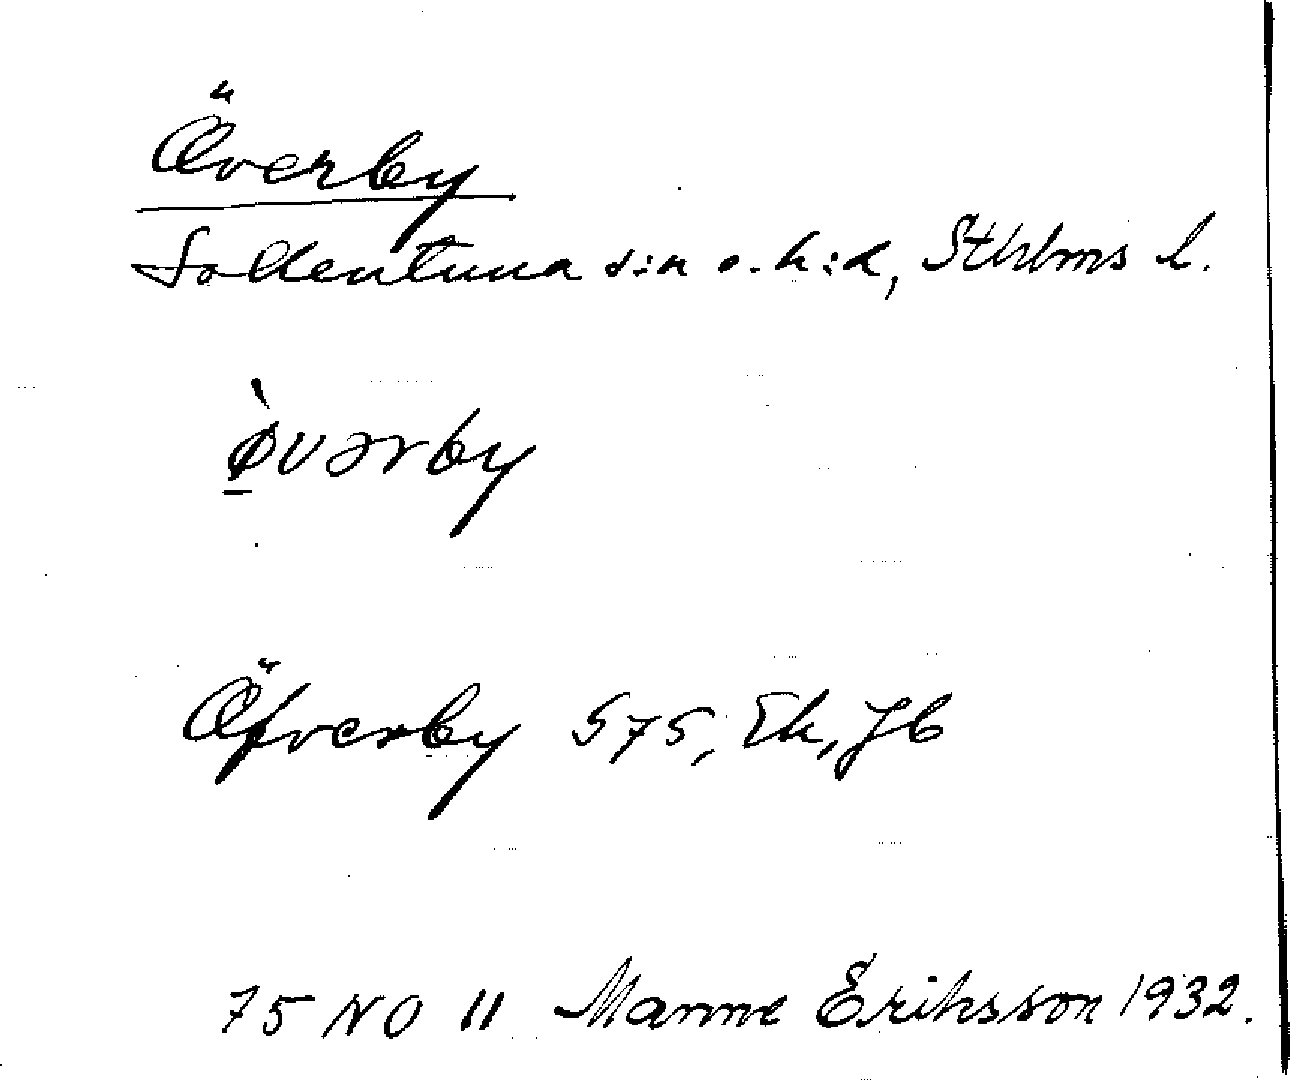 Överby
Sollentuna s:n o. h:d, Sthlms l.
ø̀vərby
Öfverby S75, Ek, Jb
75 NO 11 Manne Eriksson 1932.